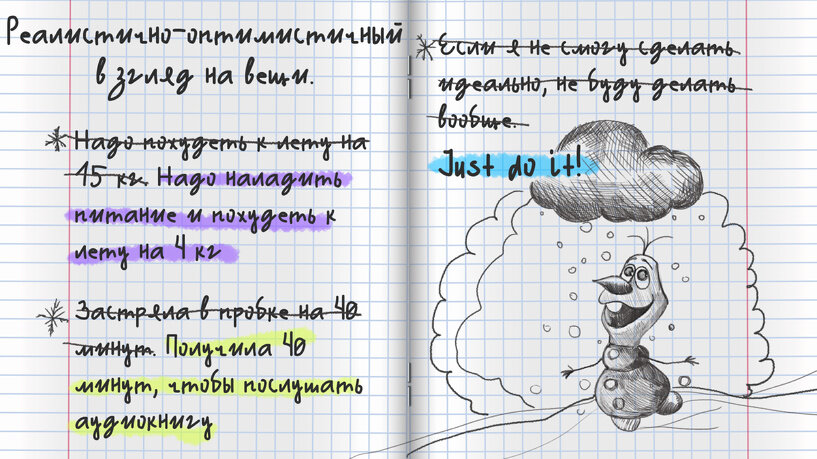 Реалистично-оптимистичный
взгляд на вещи.
Надо похудеть к лету на
15 кг. Надо наладить
питание и похудеть к
лету на 4 кг
Застряла в пробке на 40
минут. Получила 40
минут, чтобы послушать
аудиокнигу
Если я не смогу сделать
идеально, не буду делать
вообще.
Just do it!